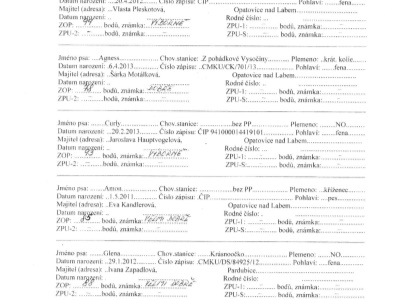 Datum narození: ...20.4.2012.... Číslo zápisu: ČIP Pohlaví: ......fena
Majitel (adresa): ..Vlasta Pleskotová, Opatovice nad Labem.
Datum narození: .. Rodné číslo: ..
ZOP: ...99... bodů, známka: VÝBORNĚ ZPU-1: ... bodů, známka:
ZPU-2: ... bodů, známka: ZPU-S: ... bodů, známka:
Jméno psa: ....Agness............ Chov.stanice: Z pohádkové Vysočiny, Plemeno: ..knír. kolie
Datum narození: .6.4.2013........ Číslo zápisu: .CMKU/CK/701/13 Pohlaví: ......fena
Majitel (adresa): ..Šárka Motálková, Opatovice nad Labem
Datum narození: .. Rodné číslo: ..
ZOP: bodů, známka: DOBŘE ZPU-1: ... bodů, známka:
ZPU-2: ... bodů, známka: ZPU-S: ... bodů, známka:
Jméno psa: .......Curly............ Chov.stanice: ..........bez PP........ Plemeno: ......NO...........
Datum narození: 20.2.2013........ Číslo zápisu: ČIP 941000014419101. Pohlaví: ......fena
Majitel (adresa): ..Jaroslava Hauptvogelová, Opatovice nad Labem.
Datum narození: .. Rodné číslo: ..
ZOP: ...93... bodů, známka: VÝBORNĚ ZPU-1: ... bodů, známka:
ZPU-2: ... bodů, známka: ZPU-S: ... bodů, známka:
Jméno psa: .......Amon............ Chov.stanice: ..........bez PP........ Plemeno: ...kříženec
Datum narození: .1.5.2011........ Číslo zápisu: .ČIP Pohlaví: ......pes
Majitel (adresa): ..Eva Kandlerová, Opatovice nad Labem
Datum narození: .. Rodné číslo: ..
ZOP: ...85... bodů, známka: VELMI DOBŘE ZPU-1: ... bodů, známka:
ZPU-2: ... bodů, známka: ZPU-S: ... bodů, známka:
Jméno psa: .......Glena............ Chov.stanice: ......Krásnoučko........ Plemeno: ......NO
Datum narození: .29.1.2012........ Číslo zápisu: CMKU/DS/84925/12 Pohlaví: ......fena
Majitel (adresa): ..Ivana Zapadlová, Pardubice.
Datum narození: Rodné číslo:
ZOP: bodů, známka: VELMI DOBŘE ZPU-1: ... bodů, známka:
ZPU-2: ... bodů, známka: ZPU-S: ... bodů, známka: